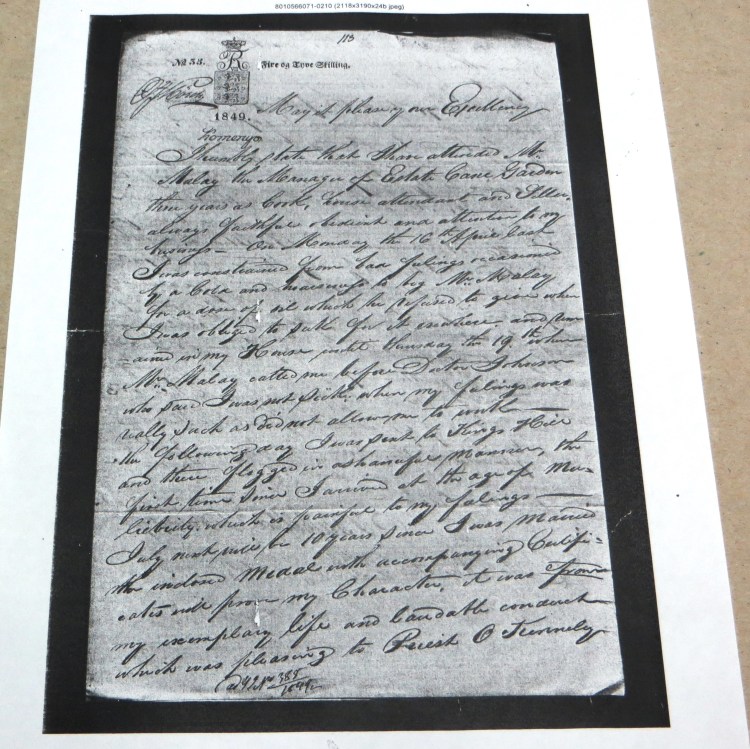 8010566071-0210 (2118x3190x24b jpeg)
113
No 33.
Fire og Tyve Skilling.
1849.
May it please your Excellency
I humbly state that I have attended Mr.
Malay the Manager of Estate Cane Garden
three years as Cook, house attendant and
always faithful obedient and attentive to my
On Monday the 16th April last
I was constrained from bad felings occasioned
by a Cold and to beg Mr. Malay
for a dose of oil which he refused to give when
I was obliged to seek for it enwhere. and rem-
-ained in my House until thursday the 19th when
Mr. Malay called me before Doctor Johnson
who said I was not sick. when my felings was
rally such as did not allow me to work
the following day I was sent to Kings Hill
and there flogged in a shameful manner, the
first time since I arrived at the age of Mu-
liebrity. which is painful to my felings
July next will be 10 years since I was Maried
the inclosed Medal with accompanying Certifi=
cates will prove my Character, it was from
my exemplary life and laudable conduct
which was pleasing to Preist O Funnely